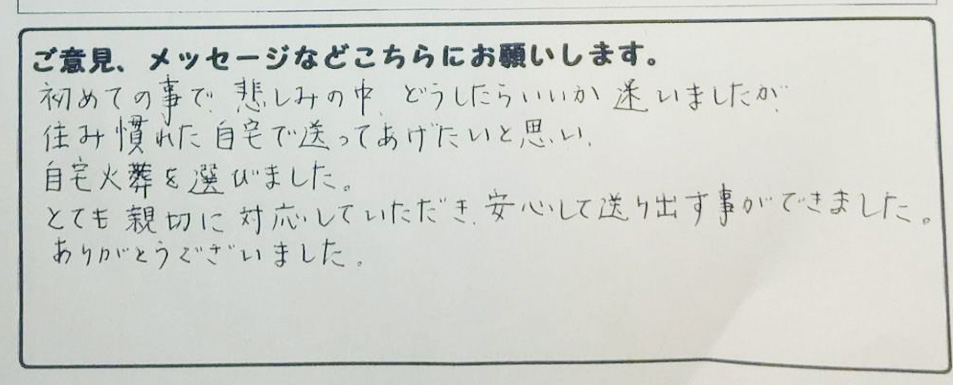 ご意見、メッセージなどこちらにお願いします。
初めての事で、悲しみの中、どうしたらいいか迷いましたが、
住み慣れた自宅で送ってあげたいと思い、
自宅火葬を選びました。
とても親切に対応していただき、安心して送り出す事ができました。
ありがとうございました。